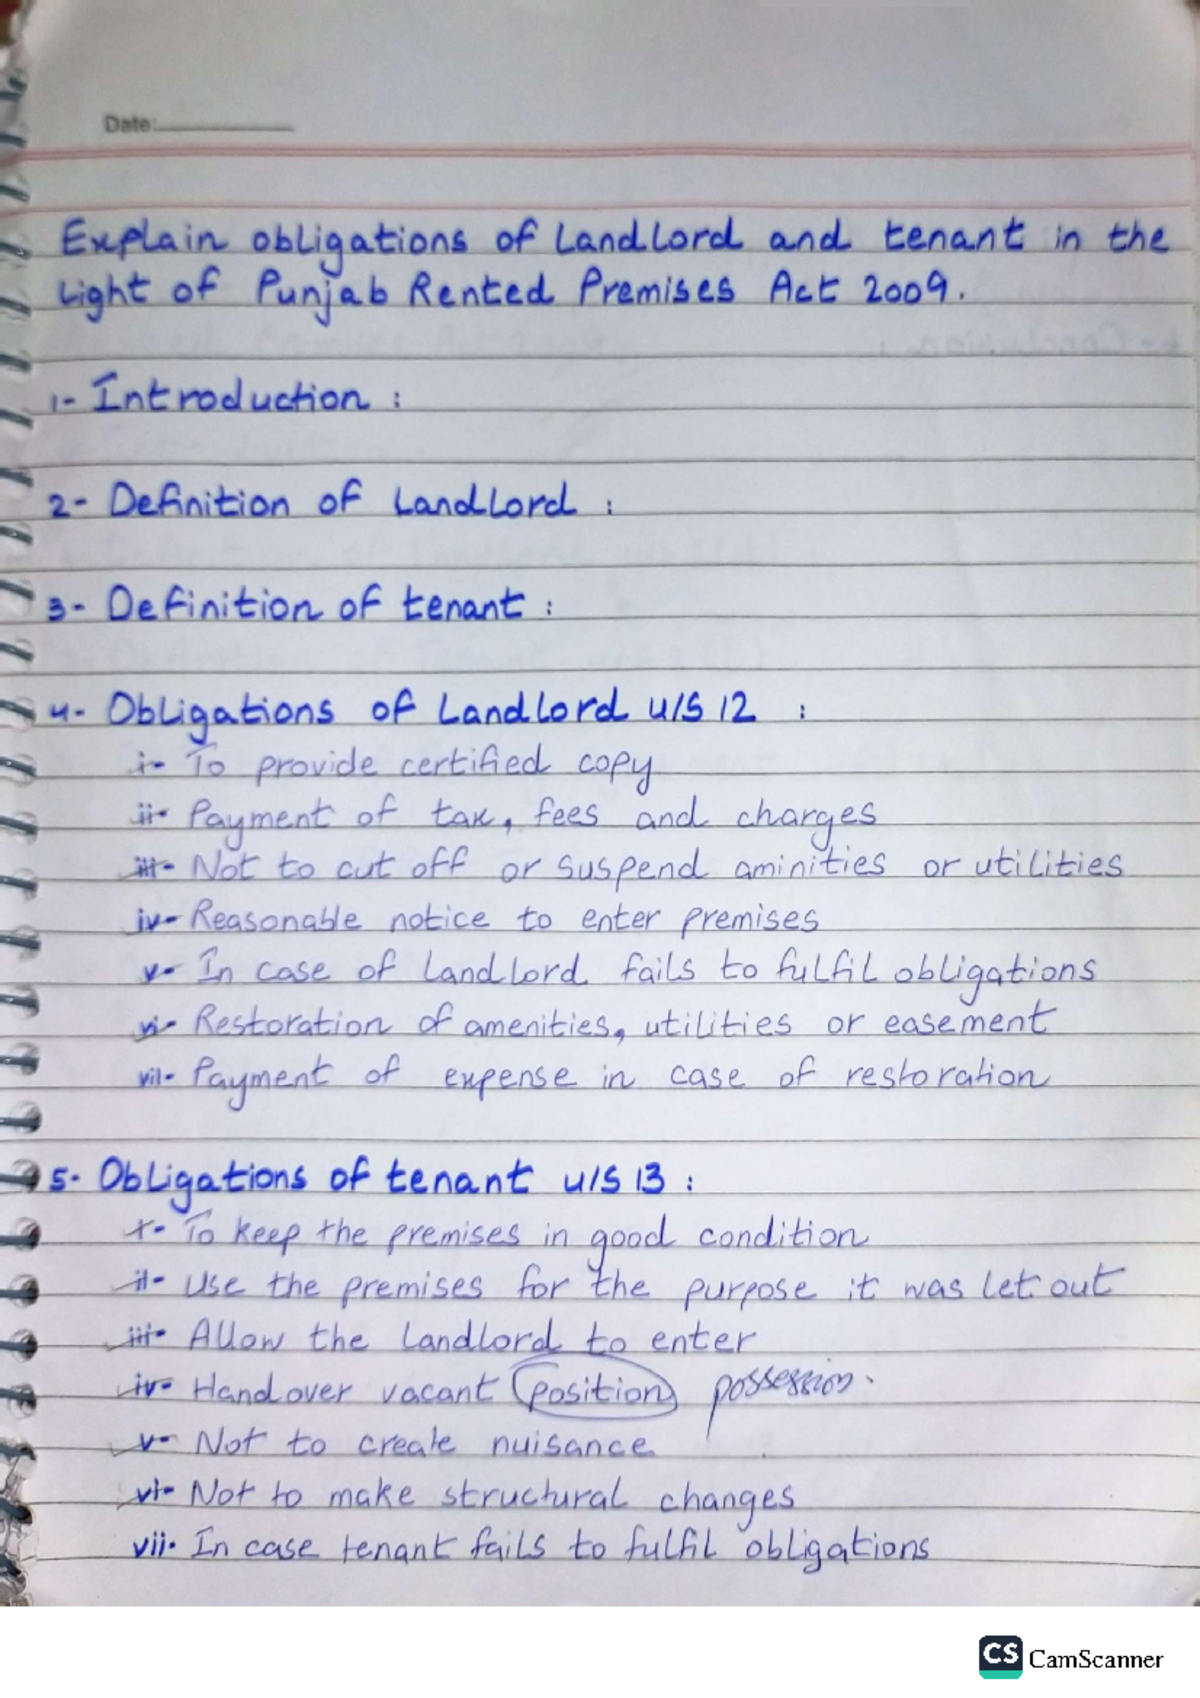 Date:
Explain obligations of Landlord and tenant in the
Light of Punjab Rented Premises Act 2009.
1- Introduction :
2- Definition of Landlord :
3- Definition of tenant :
4- Obligations of Landlord u/S 12 :
i- To provide certified copy
ii- Payment of tax, fees and charges
iii- Not to cut off or suspend aminities or utilities
iv- Reasonable notice to enter premises
v- In case of landlord fails to fulfil obligations
vi- Restoration of amenities, utilities or easement
vii- Payment of expense in case of restoration
5- Obligations of tenant u/S 13 :
i- To keep the premises in good condition
ii- Use the premises for the purpose it was let out
iii- Allow the landlord to enter
iv- Handover vacant position possession.
v- Not to create nuisance
vi- Not to make structural changes
vii. In case tenant fails to fulfil obligations
CS CamScanner